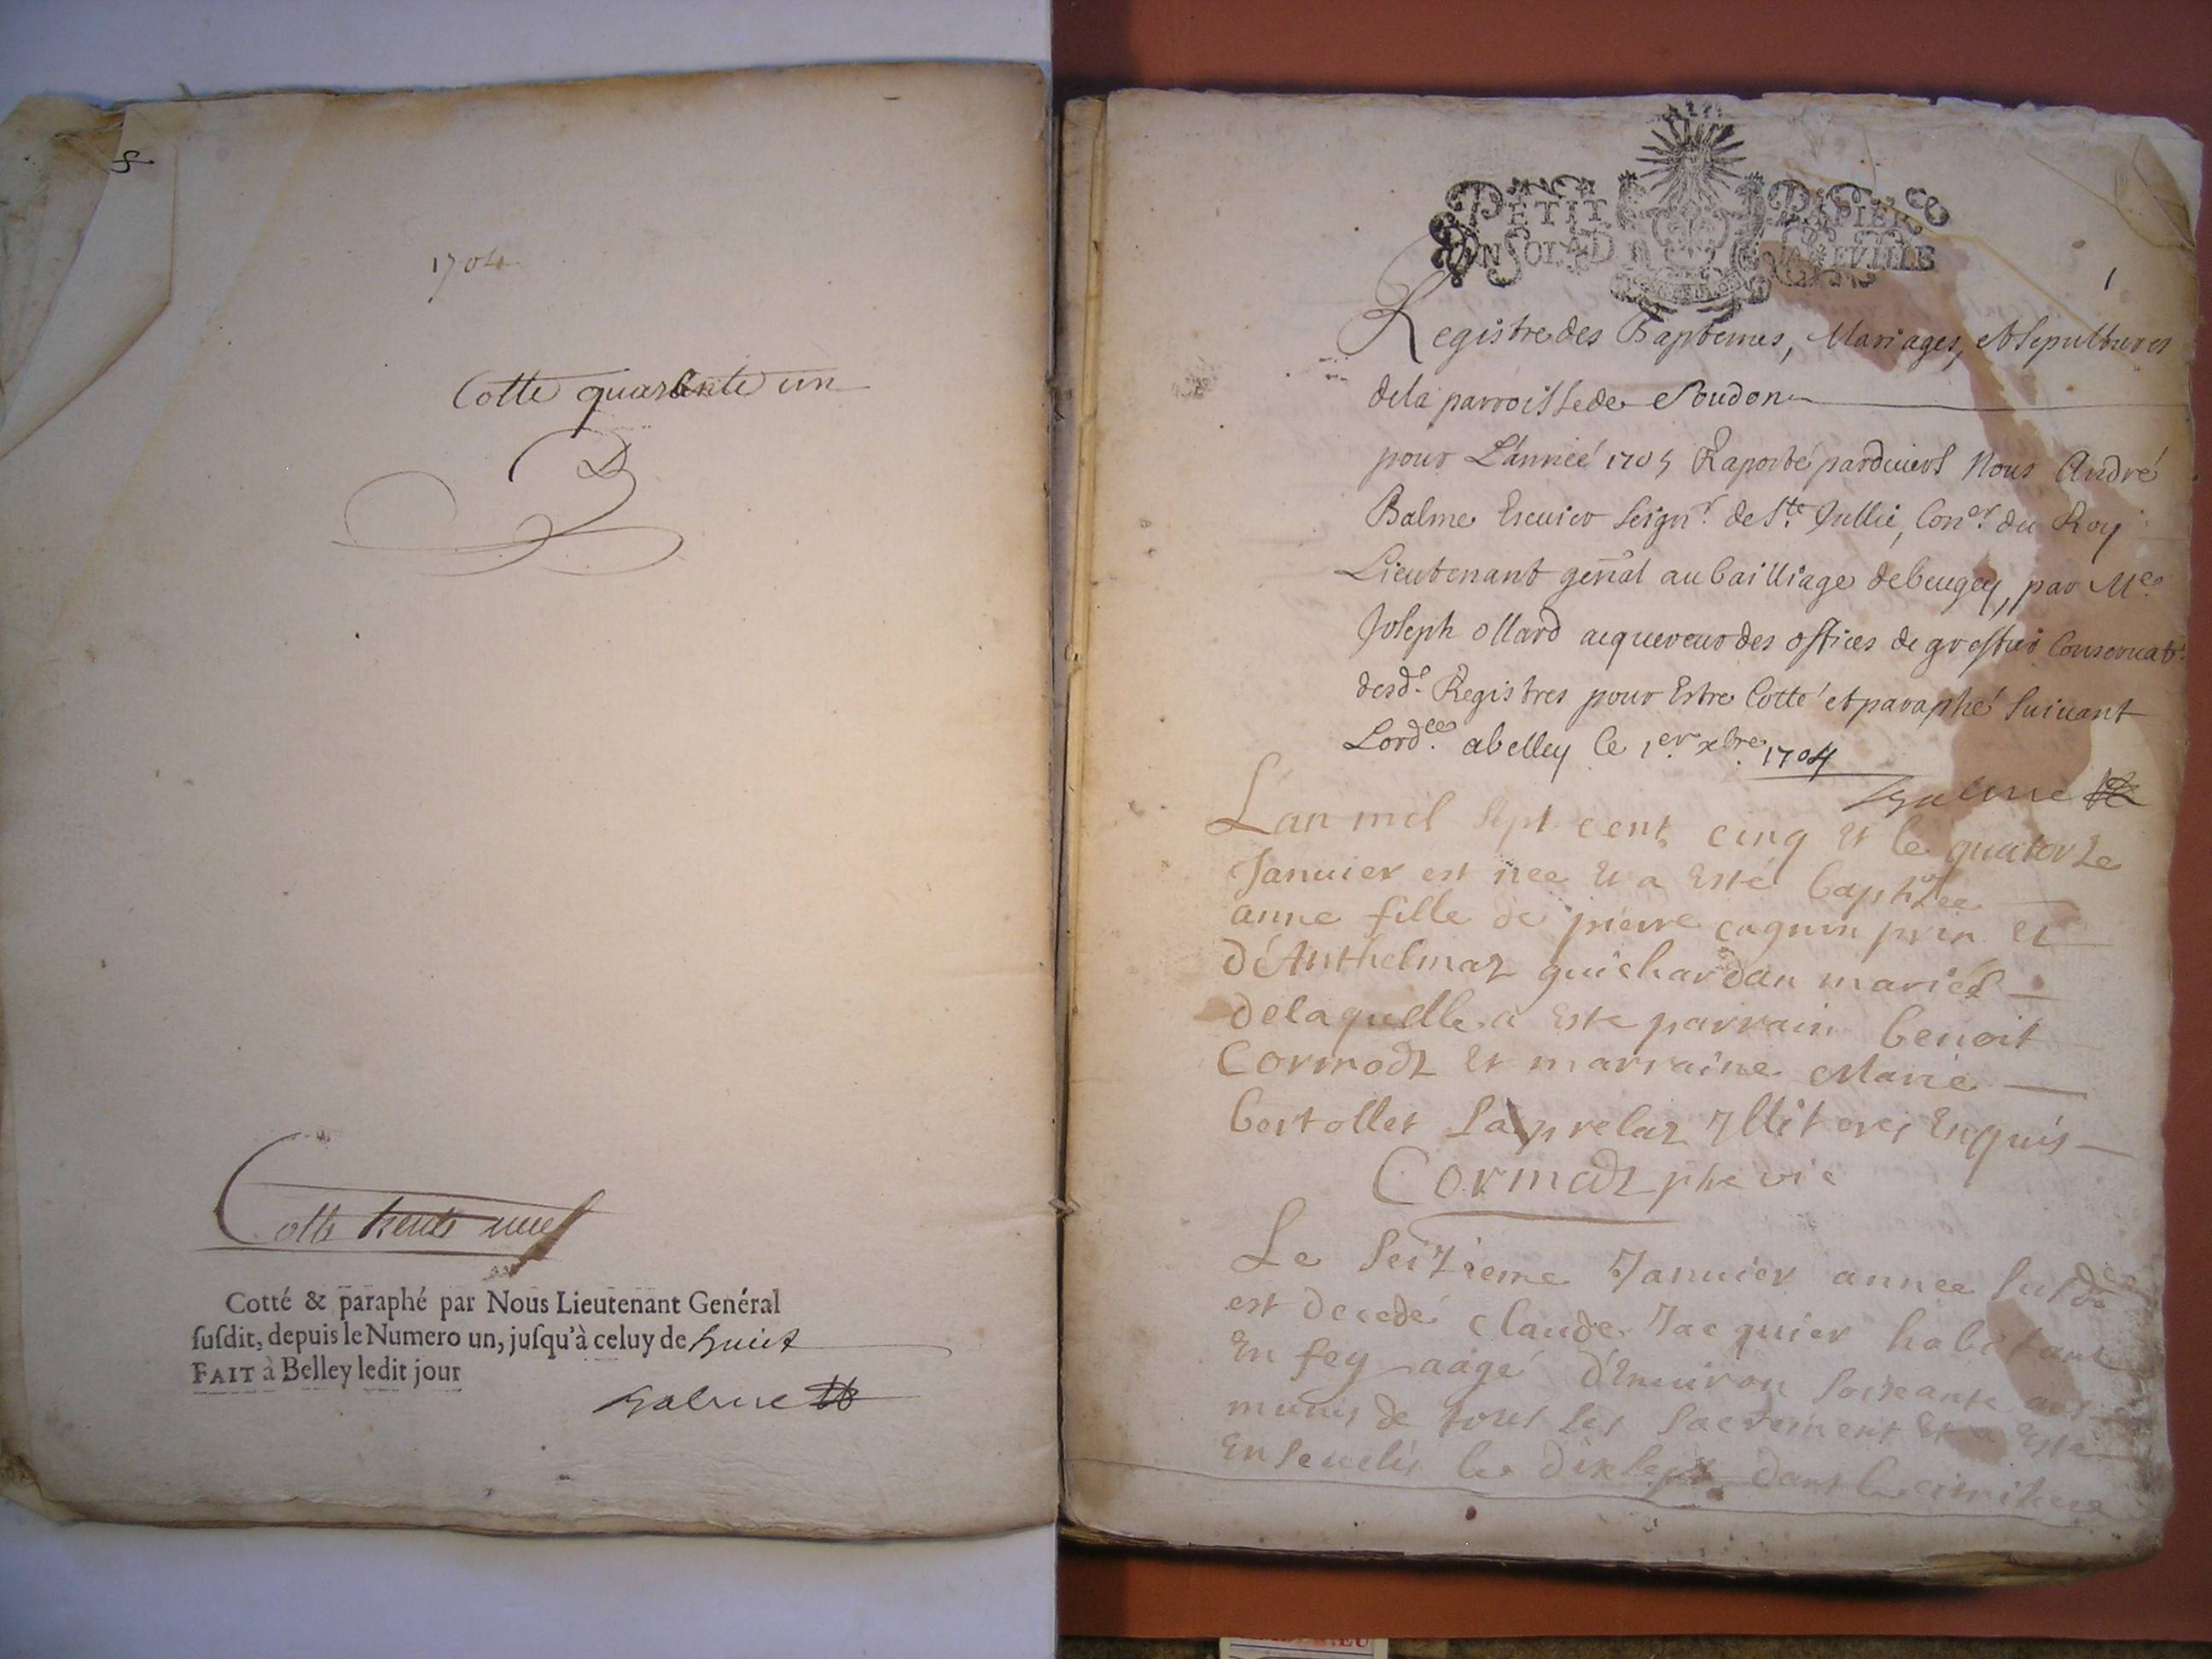 8
1704
Cotte quarante un
Cotte trente neuf
Cotté & paraphé par Nous Lieutenant Genéral
susdit, depuis le Numero un, jusqu'à celuy de huict
FAIT à Belley ledit jour
Balme
PETIT PAPIER
UN SOL LA FEVILLE
1
Registre des Baptemes, Mariages, et sepultures
de la parroisse de Poudon
pour L'année 1705 Raporté pardevers Nous André
Balme Escuier Seignr. de Ste. Jullie, Coner. du Roy
Lieutenant gen̄al au bailliage de beugey, par Me.
Joseph ollard acquereur des offices de greffier Conservatr.
desds. Registres pour Estre Cotté et paraphé suivant
Lordce. a belley le 1er. xbre. 1704
Balme
L'an mil sept cent cinq et le quatorze
Janvier est née et a esté baptisée
anne fille de pierre cagnin prin et
d'Anthelmaz guichardan mariés
de laquelle a este parrain benoit
Cormodz et marraine Marie
bertollet Illiteres Enquis
Cormodz ptre vic
Le seizieme Janvier annee susde
est decedé claude Jacquier habitant
En fey aagé d'Environ soixante ans
munis de tous les sacrement et a Este
Ensevelis le dixsept dans le cimitiere